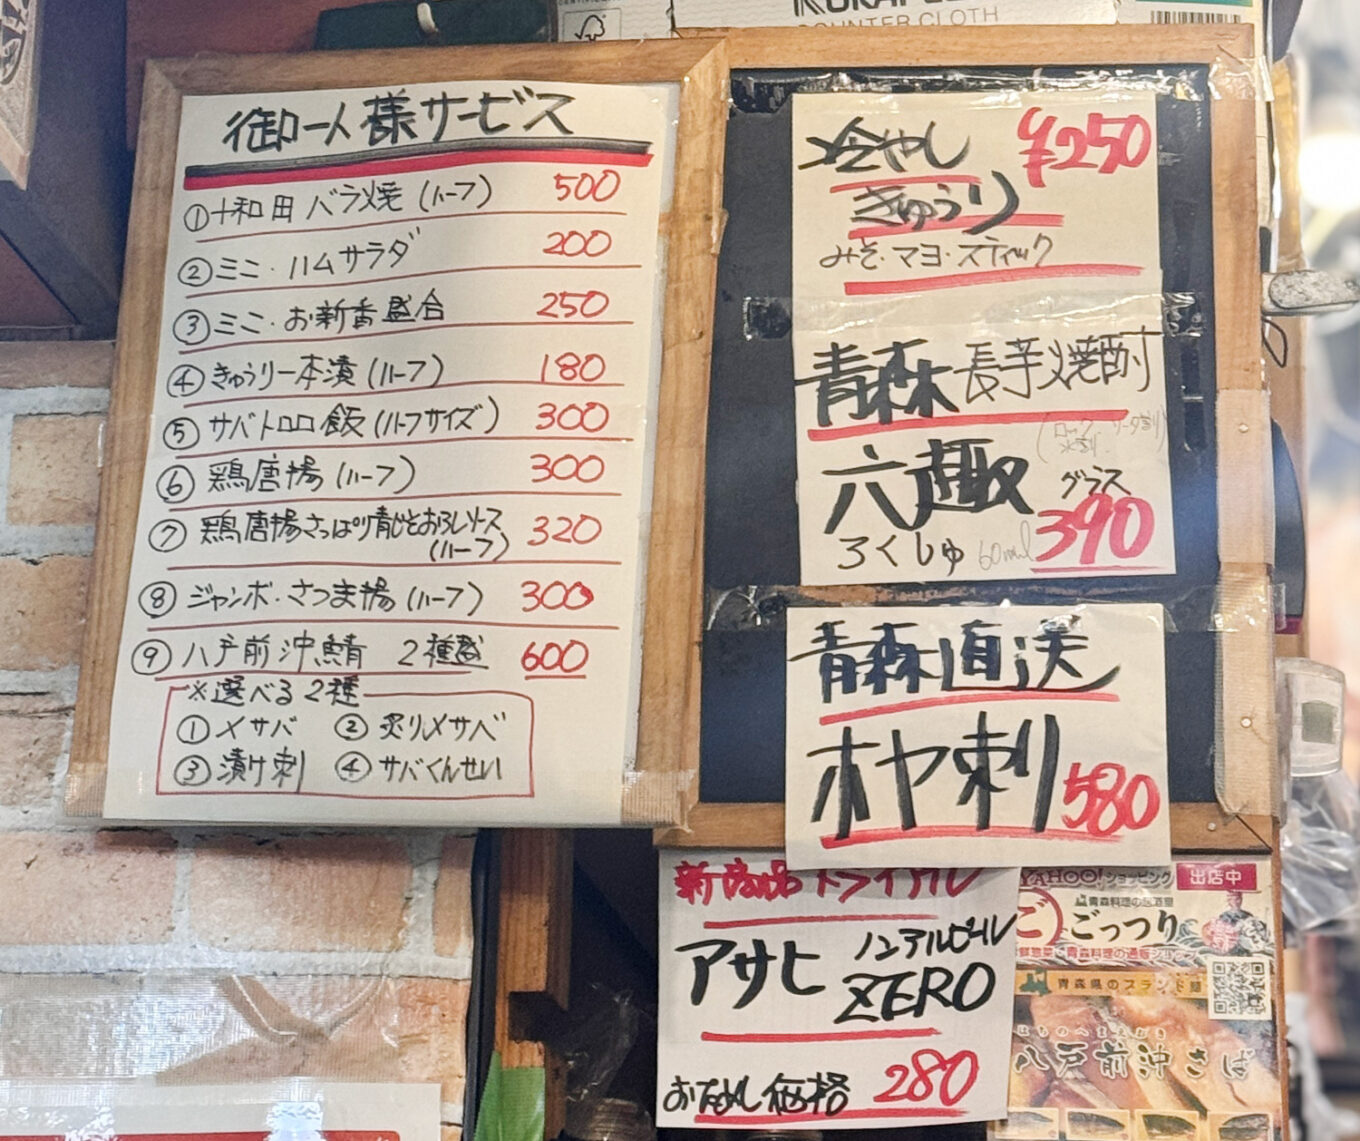 御一人様サービス
①十和田バラ焼(ハーフ) 500
②ミニ・ハムサラダ 200
③ミニ・お新香盛合 250
④きゅうり一本漬(ハーフ) 180
⑤サバトロロ飯(ハーフサイズ) 300
⑥鶏唐揚(ハーフ) 300
⑦鶏唐揚さっぱり青じそおろしソース
(ハーフ) 320
⑧ジャンボ・さつま揚(ハーフ) 300
⑨八戸前沖鯖 2種盛 600
※選べる2種
①〆サバ ②炙り〆サバ
③漬け刺 ④サバくんせい
COUNTER CLOTH
冷やし ¥250
きゅうり
みそ・マヨ・スティック
青森長芋焼酎
六趣 グラス
ろくしゅ 60ml 390
青森直送
ホヤ刺 580
トライアル
アサヒ ノンアルビール
ZERO
おためし価格 280
YAHOO!ショッピング 出店中
青森料理の居酒屋
ごっつり
青森料理の通販ショップ
青森県のブランド鯖
はちのへまえおき
八戸前沖さば